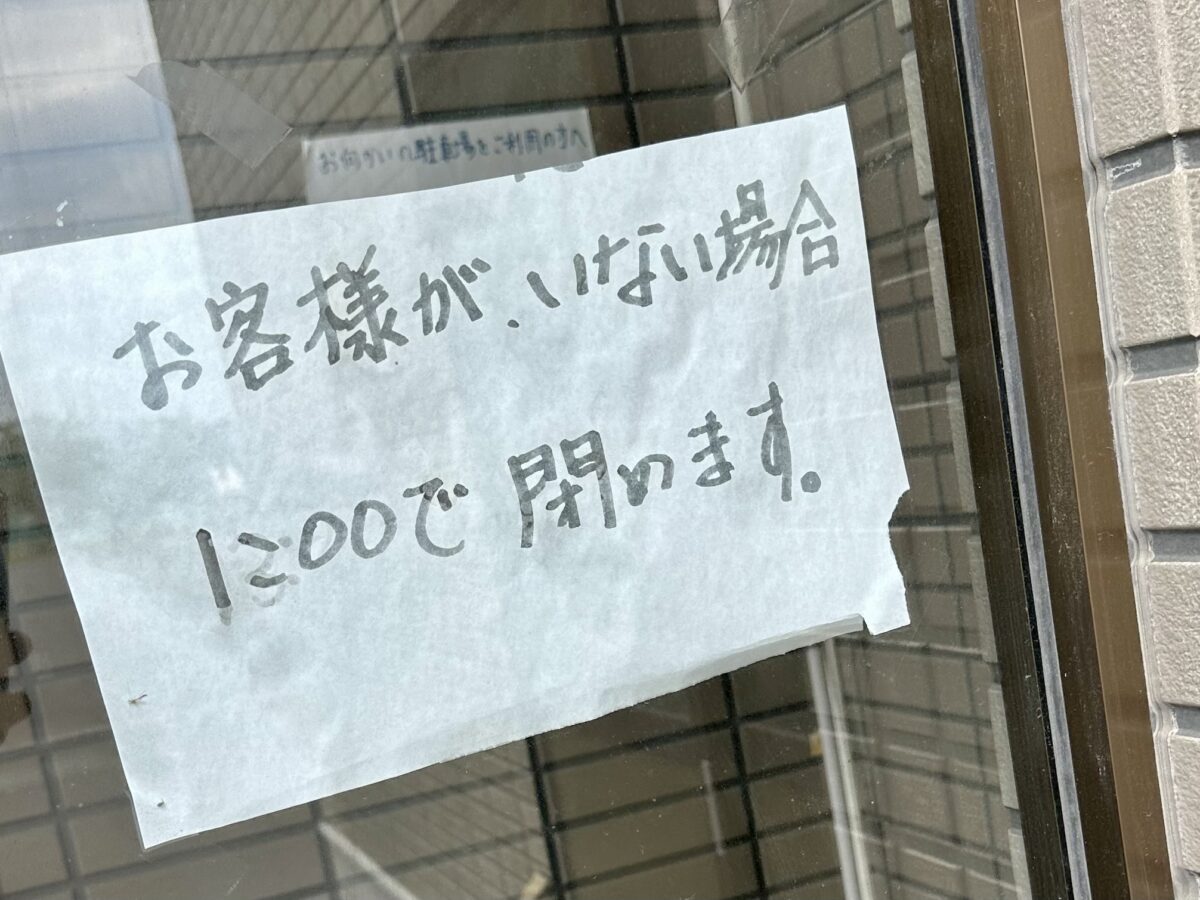 お向かいの駐車場をご利用の方へ
お客様が、いない場合
12:00で閉めます。